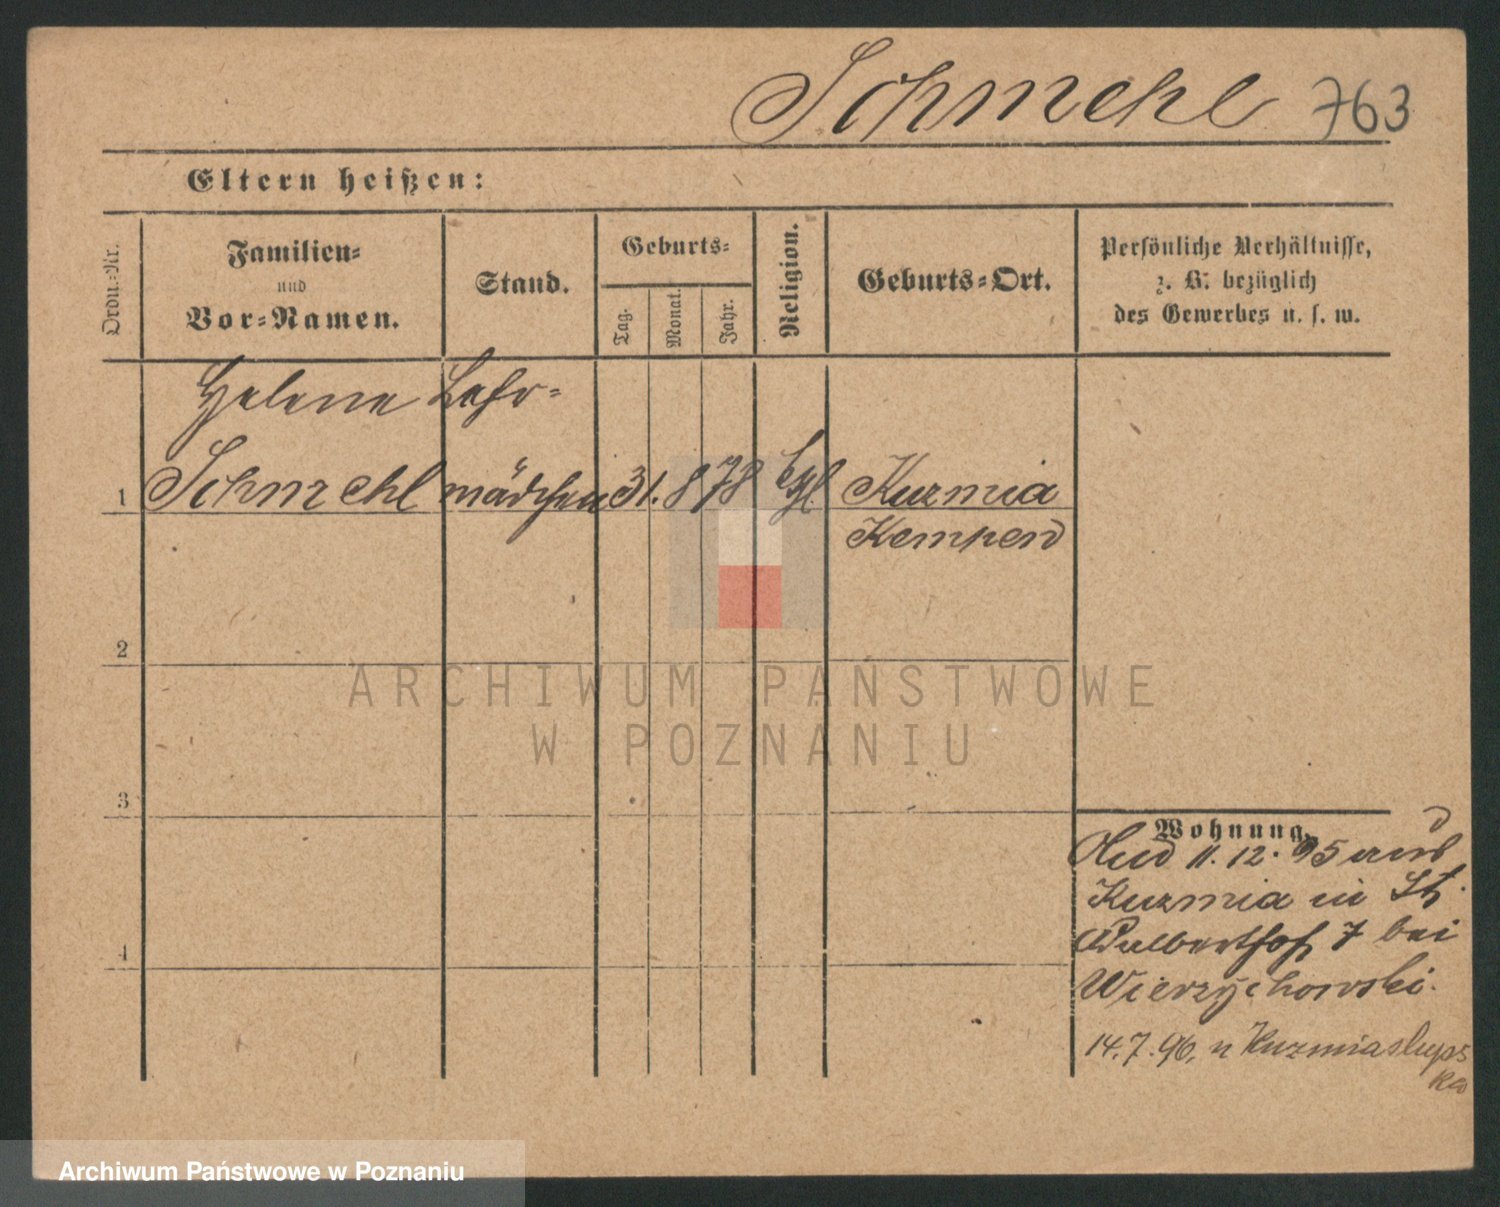 Schmehl 763
Eltern heißen:
Ordn.-Nr.
Familien-
und
Vor-Namen.
Stand.
Geburts-
Tag.
Monat.
Jahr.
Religion.
Geburts-Ort.
Persönliche Verhältnisse,
z. B. bezüglich
des Gewerbes u. s. w.
Helene Lehr-
1 Schmehl mädchen 31. 8 78 Kuzmia
Kempen
2
3
4
Wohnung.
11. 12. 95 aus
Kuzmia in St
Adalberthof 7 bei
Wierzychowski.
14. 7. 96. n Kuzmia
ARCHIWUM PAŃSTWOWE
W POZNANIU
Archiwum Państwowe w Poznaniu